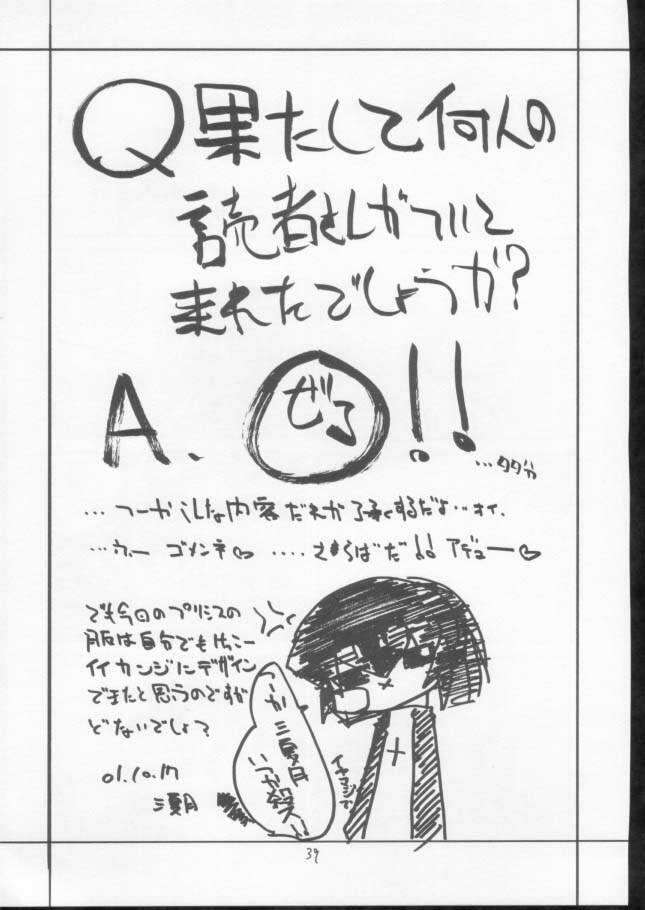 Q 果たして何人の
読者さんがついて
来れたでしょうか?
A. ぜろ !!
…タダか
…つーかこんな内容だれが了承するだよ…オイ.
…うー ゴメンネ♡ ....さらばだ!! アデュー♡
でも今回のプリシスの
服は自分でもけっこー
イイカンジにデザイン
できたと思うのですが
どないでしょ?
01.10.17
つーか
いつか殺ス!!
イヤマジで
39